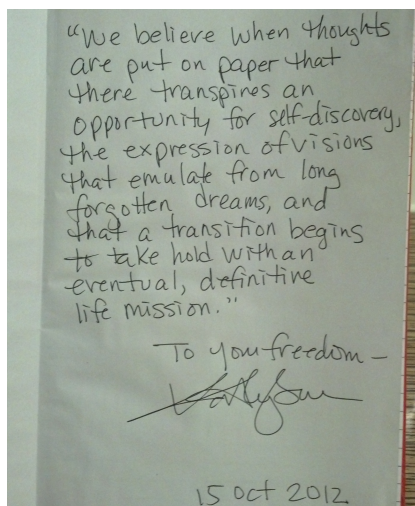 "We believe when thoughts
are put on paper that
there transpires an
opportunity for self-discovery,
the expression of visions
that emulate from long
forgotten dreams, and
that a transition begins
to take hold with an
eventual, definitive
life mission."
To your freedom –
15 Oct 2012